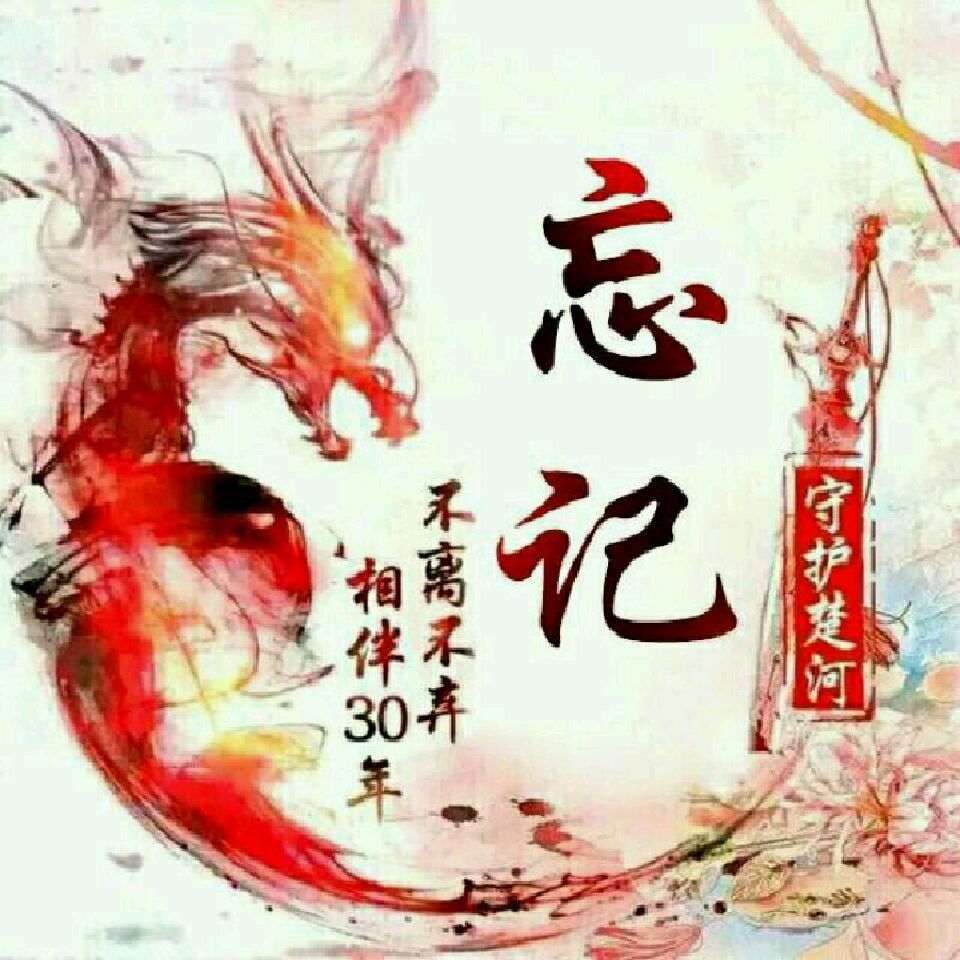 忘记
不离不弃
相伴30年
守护楚河